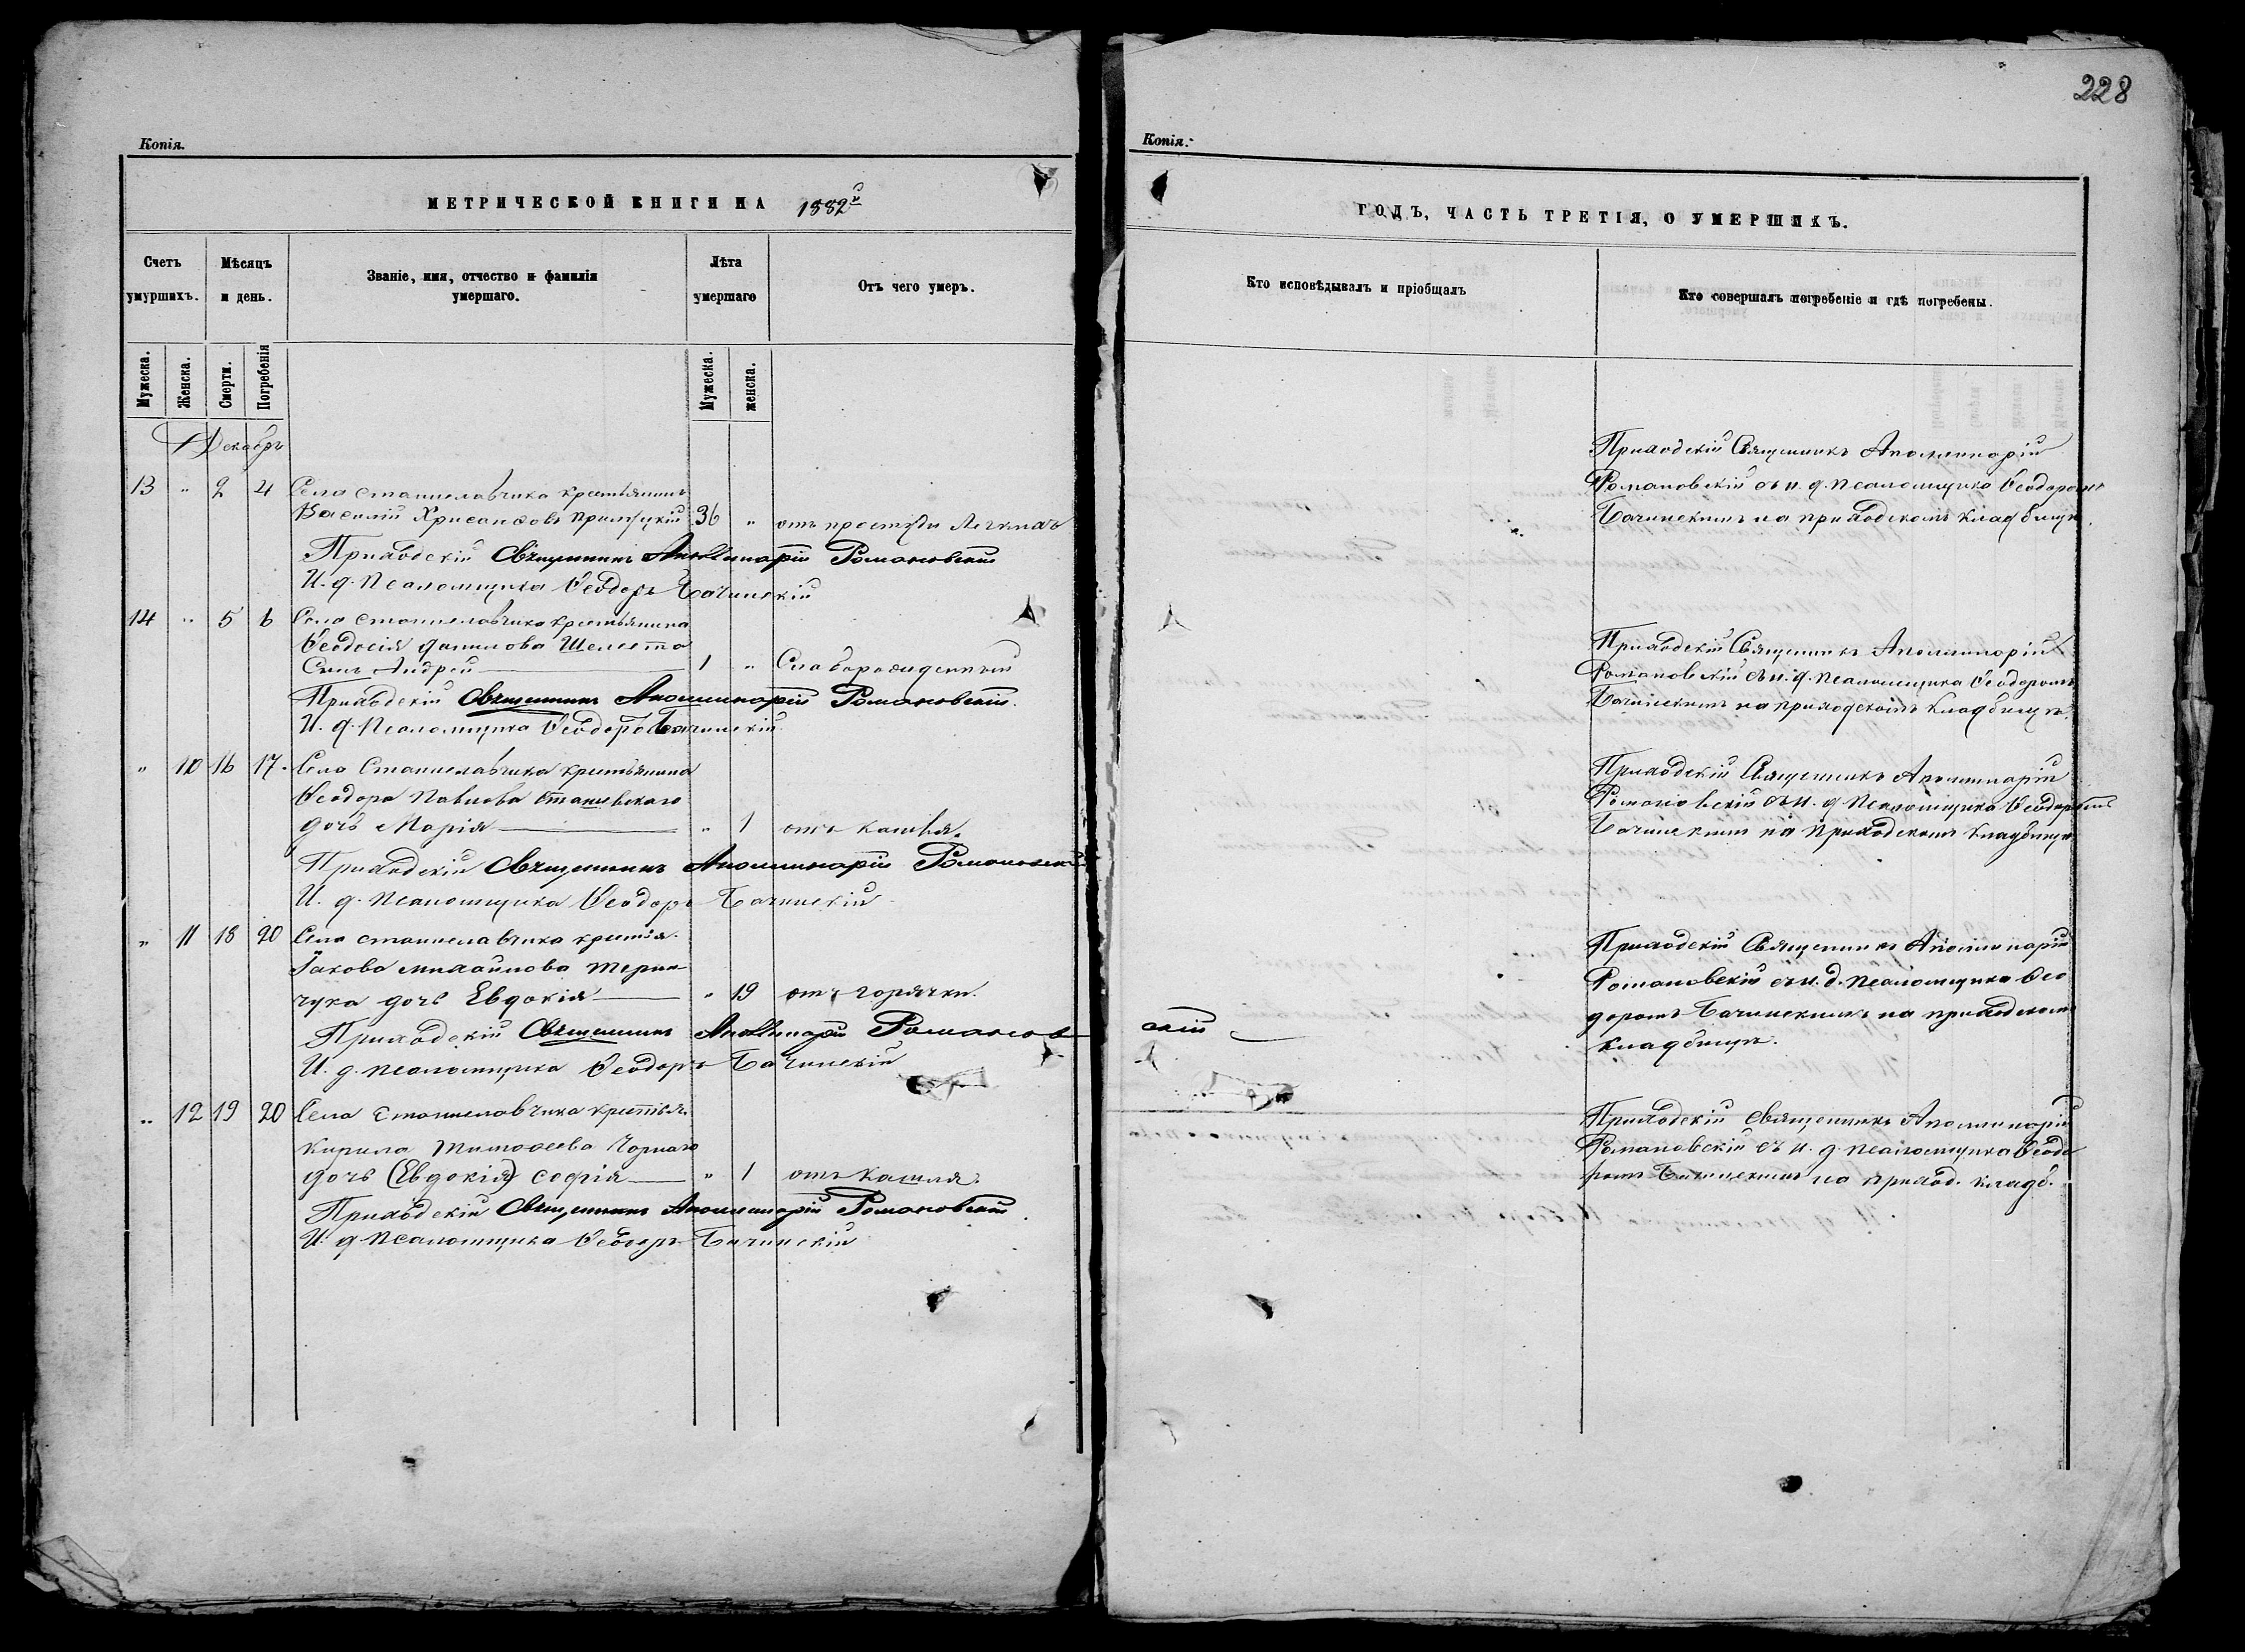 228
Копія.
МЕТРИЧЕСКОЙ КНИГИ НА 1882й
Счетъ умуршихъ.
Мѣсяцъ и день.
Званіе, имя, отчество и фамилія умершаго.
Лѣта умершаго
Отъ чего умеръ.
Мужеска.
Женска.
Смерти.
Погребенія
Мужеска.
женска.
Декабрь
13 " 2 4 Села Станиславчика крестьянинъ
Василій Хрисанфовъ 36 " отъ простуды Легкихъ
Приходскій Священникъ Аполлинарій Романовскій
И. д. Псаломщика Ѳеодоръ Бачинскій
14 " 5 6 Села Станиславчика крестьянина
Ѳеодосія Данилова Шелеста
Сынъ Андрей 1 " Слаборожденный
Приходскій Священникъ Аполлинарій Романовскій.
И. д. Псаломщика Ѳеодоръ Бачинскій
" 10 16 17. Села Станиславчика крестьянина
Ѳеодора Павлова Станевскаго
дочь Марія " 1 отъ кашля.
Приходскій Священникъ Аполлинарій Романовскій
И. д. Псаломщика Ѳеодоръ Бачинскій
" 11 18 20 Села Станиславчика крестья.
Іакова Михайлова
чука дочь Евдокія " 19 отъ горячки.
Приходскій Священникъ Аполлинарій Романов
И. д. псаломщика Ѳеодоръ Бачинскій
" 12 19 20 Села Станиславчика крестьян.
Кирила Тимоѳеева Чорнаго
дочь (Евдокія) Софія " 1 отъ кашля.
Приходскій Священникъ Аполлинарій Романовскій
И. д. Псаломщика Ѳеодоръ Бачинскій
Копія.
ГОДЪ, ЧАСТЬ ТРЕТІЯ, О УМЕРШИХЪ.
Кто исповѣдывалъ и пріобщалъ
Кто совершалъ погребеніе и гдѣ погребены.
Приходскій Священникъ Аполлинарій
Романовскій съ и. д. псаломщика Ѳеодоромъ
Бачинскимъ на приходскомъ кладбищѣ.
Приходскій Священникъ Аполлинарій
Романовскій съ и. д. псаломщика Ѳеодоромъ
Бачинскимъ на приходскомъ кладбищѣ.
Приходскій Священникъ Аполлинарій
Романовскій съ и. д. Псаломщика Ѳеодоромъ
Бачинскимъ на Приходскомъ кладбищѣ
скій
Приходскій Священникъ Аполлинарій
Романовскій съ и. д. псаломщика Ѳео
доромъ Бачинскимъ на приходскомъ
кладбищѣ.
Приходскій Священникъ Аполлинарій
Романовскій съ и. д. псаломщика Ѳеодо
ромъ Бачинскимъ на приход. кладб.